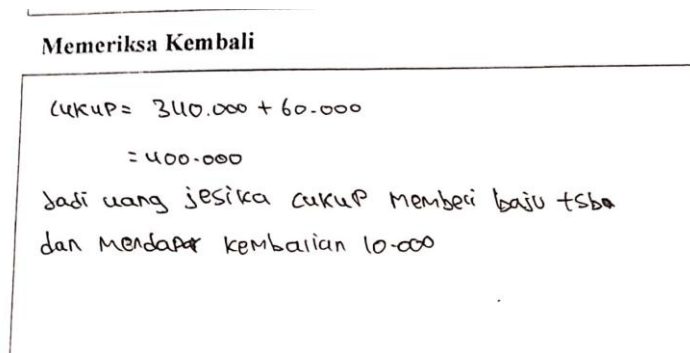 Memeriksa Kembali
Cukup = 340.000 + 60.000
= 400.000
Jadi uang jesika cukup Membeli baju tsb
dan Mendapat kembalian 10.000